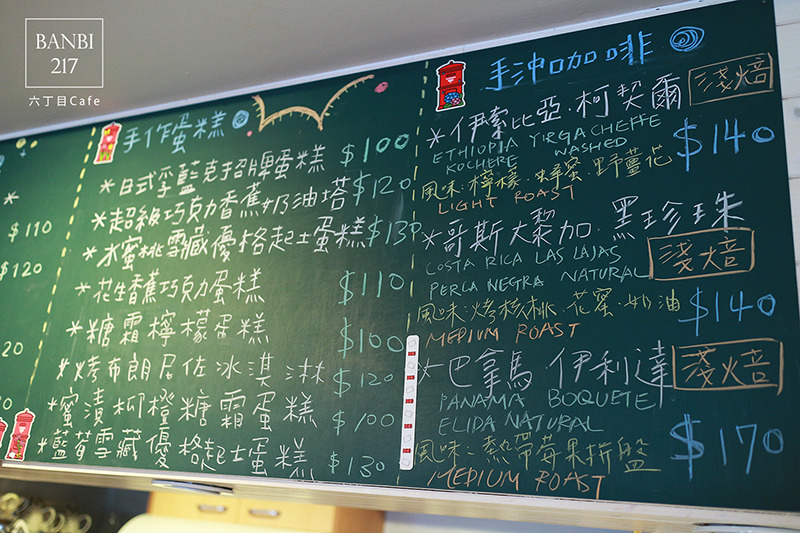 BANBI
217
六丁目Cafe
$110
$120
20
手作蛋糕
*日式李藍克招牌蛋糕 $100
*超級巧克力香蕉奶油塔 $120
*水蜜桃雪藏優格起士蛋糕 $130
*花生香蕉巧克力蛋糕 $110
*糖霜檸檬蛋糕 $100
*烤布朗尼佐冰淇淋 $120
*蜜漬柳橙糖霜蛋糕 $100
*藍莓雪藏優格起士蛋糕 $130
手沖咖啡
*伊索比亞.柯契爾 淺焙
ETHIOPIA YIRGACHEFFE $140
KOCHERE WASHED
風味:檸檬.蜂蜜.野薑花
LIGHT ROAST
*哥斯大黎加.黑珍珠
COSTA RICA LAS LAJAS 淺焙
PERLA NEGRA NATURAL
風味:烤核桃.花蜜.奶油 $140
MEDIUM ROAST
*巴拿馬 伊利達 淺焙
PANAMA BOQUETE
ELIDA NATURAL $170
風味:熱帶莓果拼盤
MEDIUM ROAST